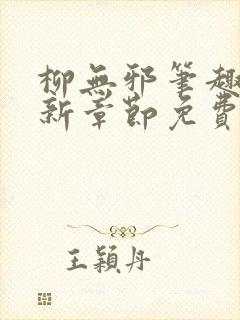 柳無邪筆趣
新章節免費
王穎丹